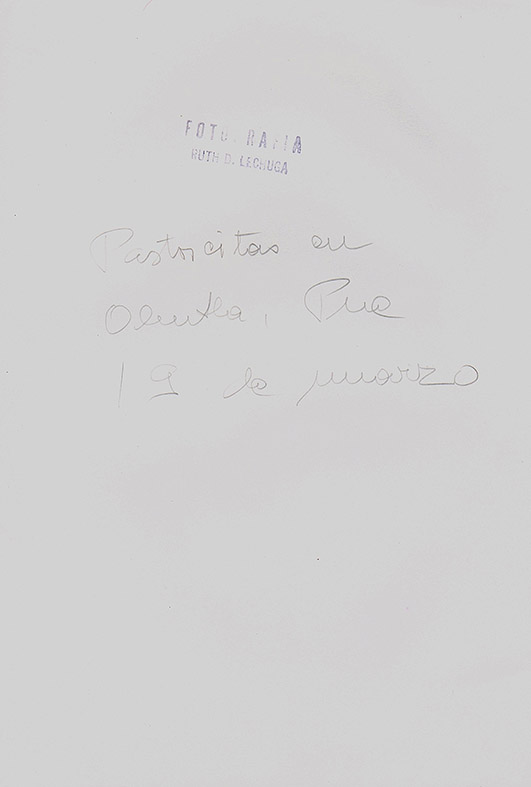 FOTOGRAFIA
RUTH D. LECHUGA
Pastorcitas en
Olintla, Pue
19 de marzo